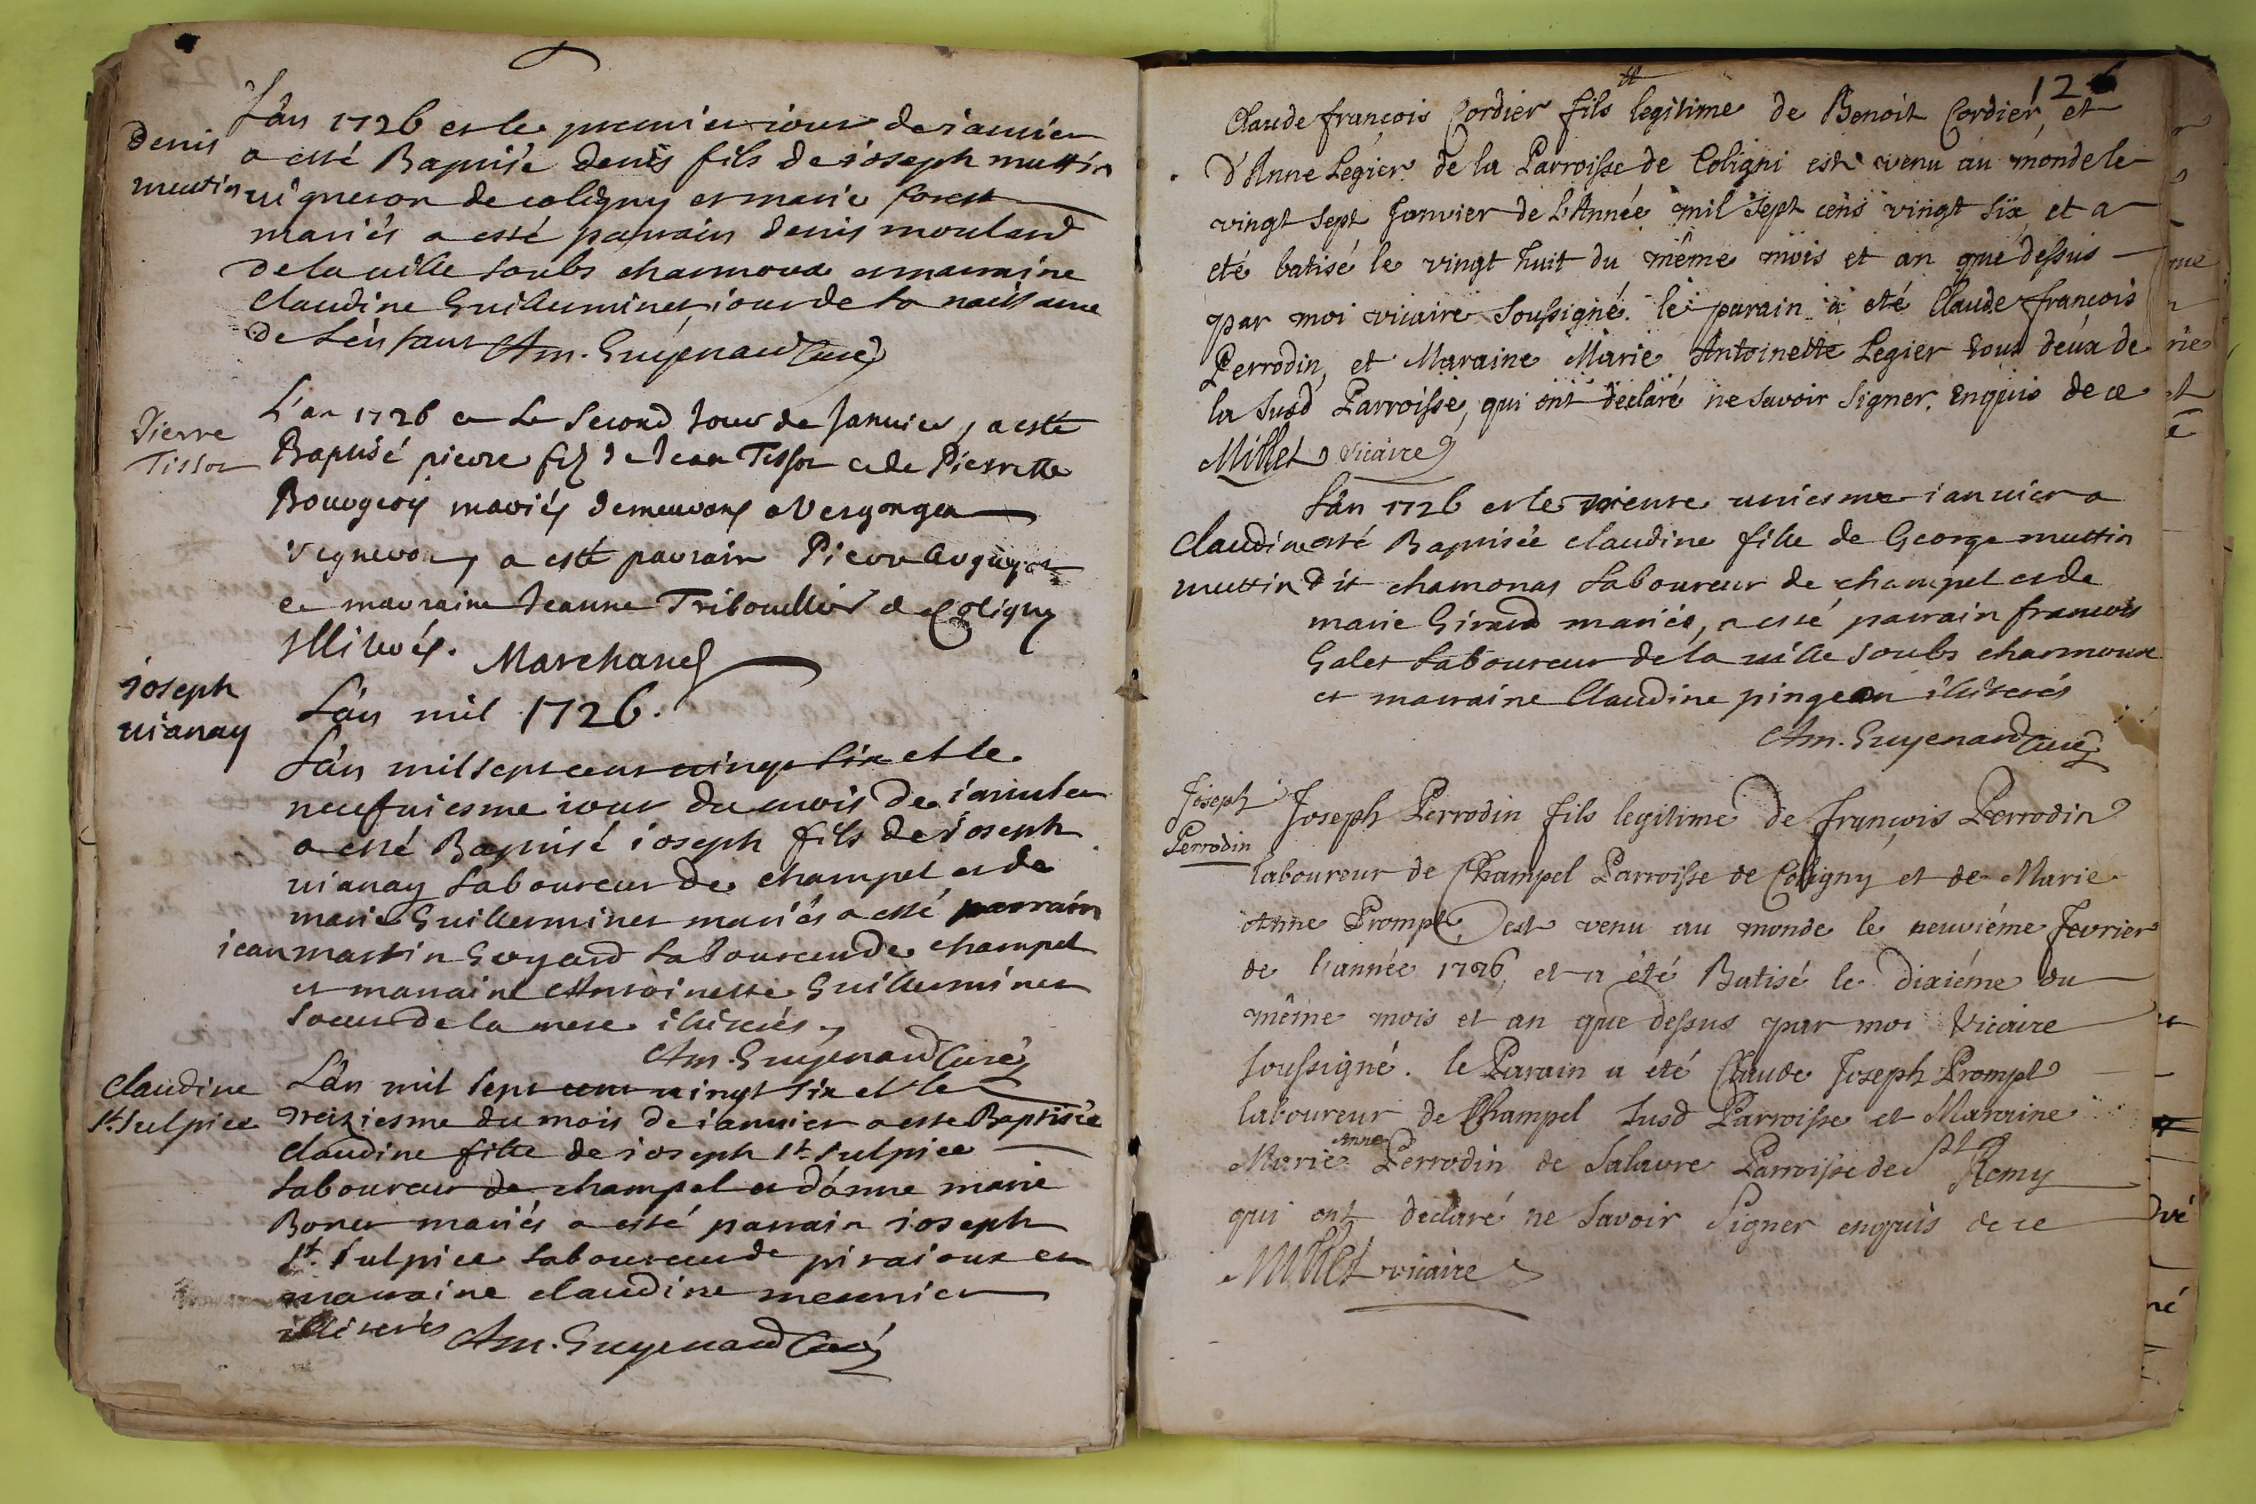 denis
muttin
L'an 1726 et le premier iour de ianuier
a esté Baptisé denis fils de ioseph muttin
uigneron de coligny et marie forest
mariés a esté parrain denis moulard
de la uille soubs charmoux et marraine
claudine Guillerminet iour de la naissance
de L'enfant Am. Guyenard Curé
Pierre
Tissot
L'an 1726 et Le Second Jour de Januier, a esté
Baptisé pierre fils de Jean Tissot et de Pierrette
Bourgeois mariés demeurans a Vergongea
vigneron, a esté parrain Pierre
et marraine Jeanne Tribouillier de Coligny
illiterés. Marchand
ioseph
uianay
L'an mil 1726.
L'an mil sept cent uingt six et le
neufuiesme iour du mois de ianuier
a esté Baptisé ioseph fils de ioseph
uianay Laboureur de champel et de
marie Guillerminet mariés a esté parrain
iean martin Guyard Laboureur de champel
et marraine Antoinette Guillerminet
soeur de la mere illiterés,
Am. Guyenard Curé
Claudine
St. Sulpice
L'an mil sept cent uingt six et le
treiziesme du mois de ianuier a esté Baptisée
claudine fille de ioseph St. Sulpice
Laboureur de champel et d'anne marie
Bonet mariés a esté parrain ioseph
St. Sulpice Laboureur de piraioux et
marraine claudine meunier
illiterés Am. Guyenard Curé
126
Claude françois Cordier fils legitime de Benoit Cordier, et
d'Anne Legier de la Parroisse de Coligni est venu au monde le
vingt sept Janvier de L'Année mil sept cens vingt six, et a
eté batisé le vingt huit du même mois et an que dessus
par moi vicaire soussigné. le parain a eté Claude françois
Perrodin, et Maraine Marie Antoinette Legier tous deux de
la susd Parroisse, qui ont déclaré ne savoir signer, enquis de ce
Millet vicaire
Claudine
muttin
L'an 1726 et le trente uniesme ianuier a
esté Baptisée claudine fille de George muttin
dit chamonas Laboureur de champel et de
marie Girard mariés, a esté parrain francois
Galet Laboureur de la uille soubs charmoux
et marraine Claudine pingeon illiterés
Am. Guyenard Curé
Joseph
Perrodin
Joseph Perrodin fils legitime de françois Perrodin
laboureur de Champel Parroisse de Coligny et de Marie
Anne Prompt, est venu au monde le neuviéme Fevrier
de l'année 1726, et a été Batisé le dixiéme du
même mois et an que dessus par moi Vicaire
soussigné. le Parain a été Claude Joseph Prompt
laboureur de Champel susd Parroisse et Maraine
Marie Anne Perrodin de Salavre Parroisse de St Remy
qui ont declaré ne savoir signer enquis de ce
Millet vicaire